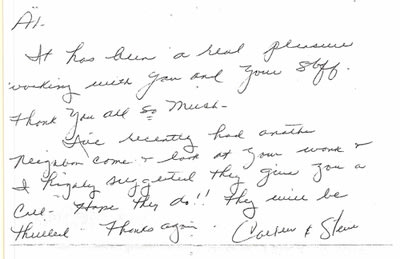 Al-
It has been a real pleasure
working with you and your staff.
Thank you all so mush-
I've recently had another
neighbor come & look at your work &
I highly suggested they give you a
call- Hope they do!! They will be
thrilled. Thanks again. & Steve